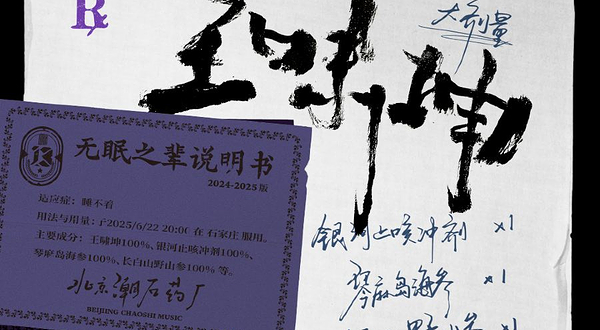 ℞
大剂量
王啸坤
无眠之辈说明书
2024-2025版
适应症：睡不着
用法与用量：于2025/6/22 20:00 在 石家庄 服用。
主要成分：王啸坤100%、银河止咳冲剂100%、
琴麻岛海参100%、长白山野山参100% 等。
北京潮石药厂
BEIJING CHAOSHI MUSIC
银河止咳冲剂 x1
琴麻岛海参 x1